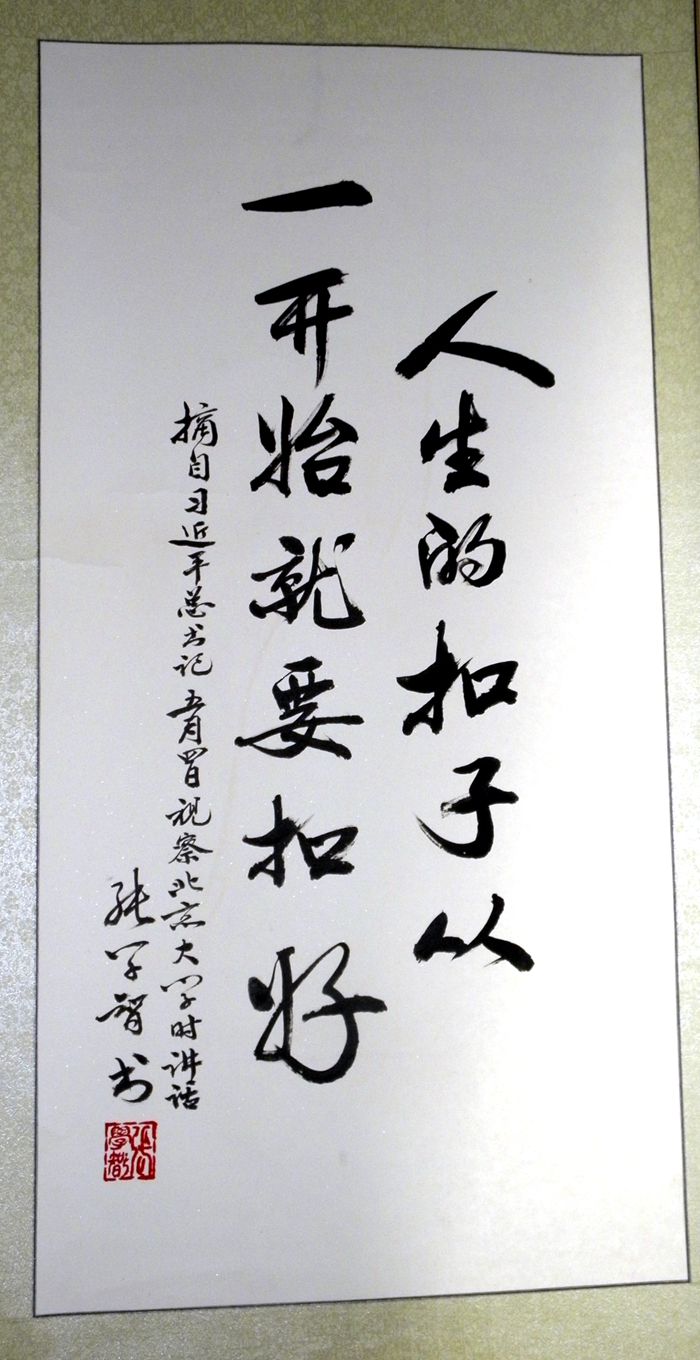 人生的扣子从
一开始就要扣好
摘自习近平总书记五月四日视察北京大学时讲话
张学智书